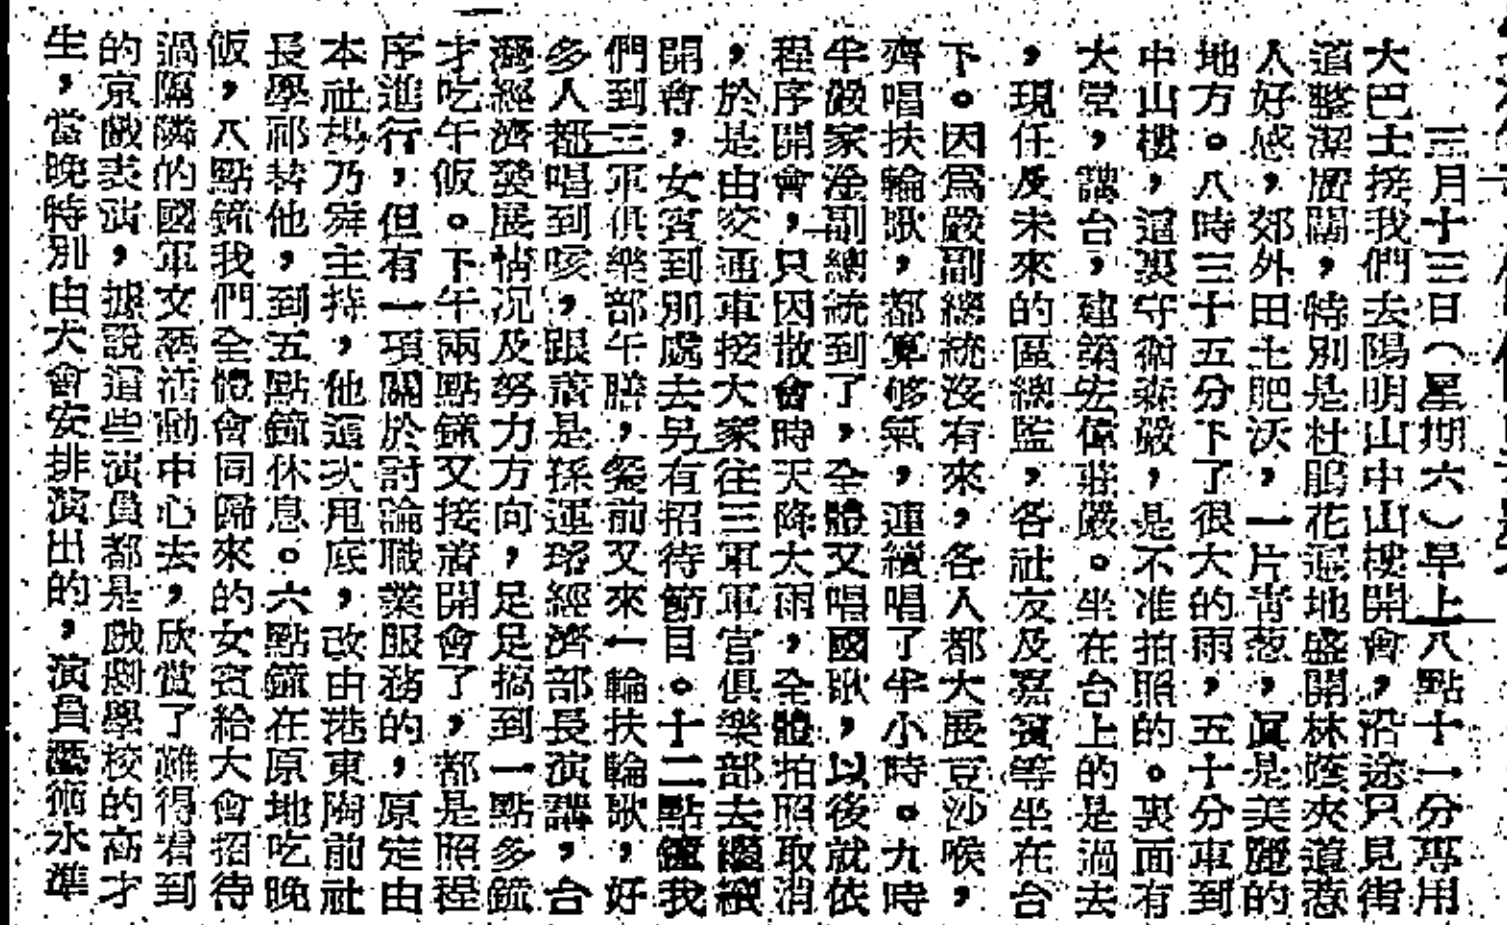 三月十三日（星期六）早上八點十一分專用
大巴士接我們去陽明山中山樓開會，沿途只見街
道整潔廣闊，特別是杜鵑花遍地盛開林蔭夾道惹
人好感，郊外田土肥沃，一片青葱，眞是美麗的
地方。八時三十五分下了很大的雨，五十分車到
中山樓，這裏守衛森嚴，是不准拍照的。裏面有
大堂，講台，建築宏偉莊嚴。坐在台上的是過去
，現任及未來的區總監，各社友及嘉賓等坐在台
下。因爲嚴副總統沒有來，各人都大展豆沙喉，
齊唱扶輪歌，都算修氣，連續唱了半小時。九時
半嚴家淦副總統到了，全體又唱國歌，以後就依
程序開會，只因散會時天降大雨，全體拍照取消
，於是由交通車接大家往三軍軍官俱樂部去繼續
開會，女賓到別處去另有招待節目。十二點鐘我
們到三軍俱樂部午膳，餐前又來一輪扶輪歌，好
多人都唱到咳，跟着是孫運璿經濟部長演講，台
灣經濟發展情況及努力方向，足足搞到一點多鐘
才吃午飯。下午兩點鐘又接着開會了，都是照程
序進行，但有一項關於討論職業服務的，原定由
本社楊乃舜主持，他這次甩底，改由港東陶前社
長學祁替他，到五點鐘休息。六點鐘在原地吃晚
飯，八點鐘我們全體會同歸來的女賓給大會招待
過隔隣的國軍文藝活動中心去，欣賞了難得看到
的京戲表演，據說這些演員都是戲劇學校的高才
生，當晚特別由大會安排演出的，演員藝術水準